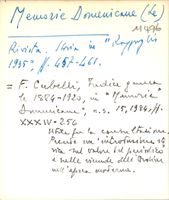 Memorie Domenicane (Le)
Rivista. Storia in "Ragguagli
1935", pp. 457-461.
= F. Cubelli, Indice genera
le 1884-1920, in "Memorie
Domenicane", n.s. 15, 1984, pp.
XXXIV-256
utile per la consultazione.
Precede una introduzione sto
sul valore del periodico
e nelle vicende dell'Ordine
nell'epoca moderna.